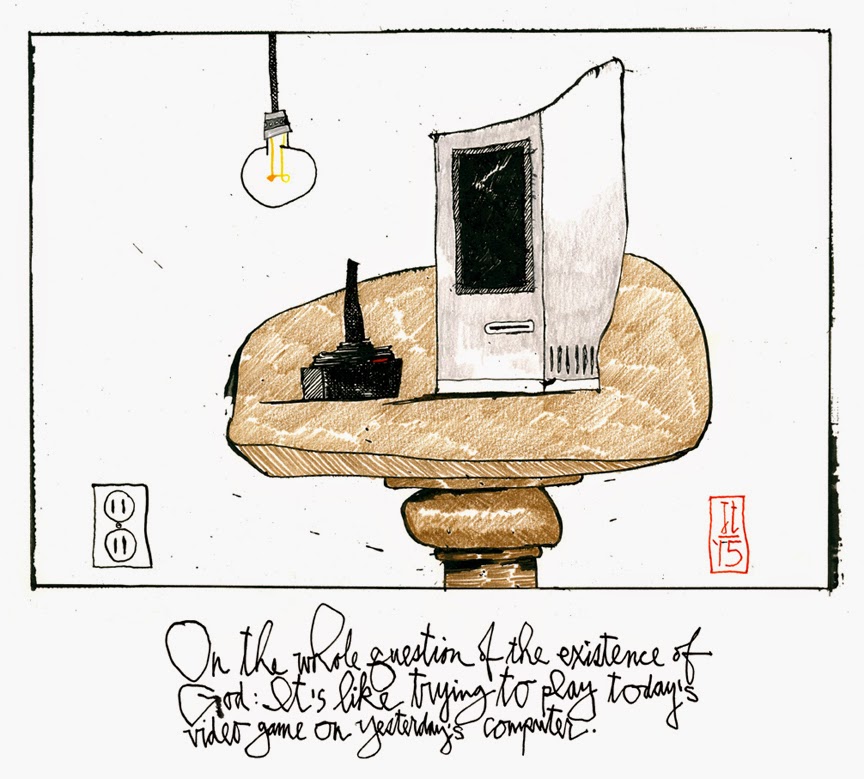 Jt
'15
On the whole question of the existence of
God: It's like trying to play today's
video game on yesterday's computer.